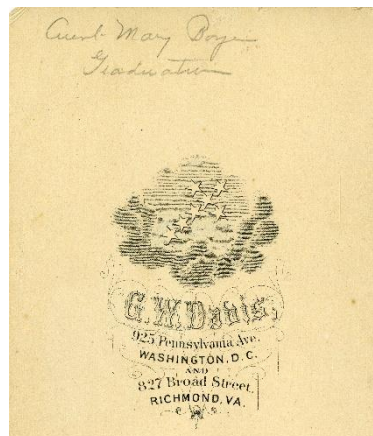 Aunt Mary Boyer
Graduation
G.W.Davis,
925 Pennsylvania Ave.
WASHINGTON, D.C.
AND
827 Broad Street,
RICHMOND, VA.